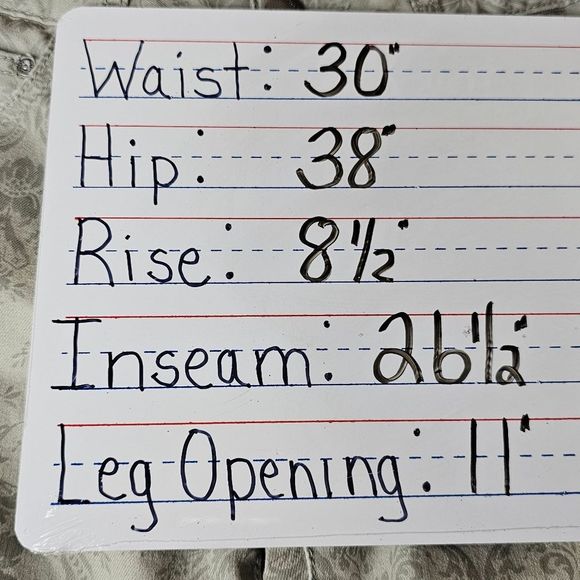 Waist: 30"
Hip: 38"
Rise: 8 1/2"
Inseam: 26 1/2"
Leg Opening: 11"